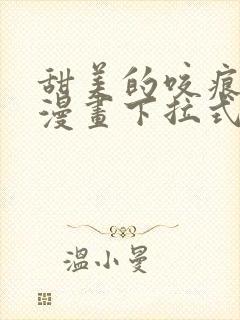 甜美的咬痕
漫畫下拉式
溫小曼